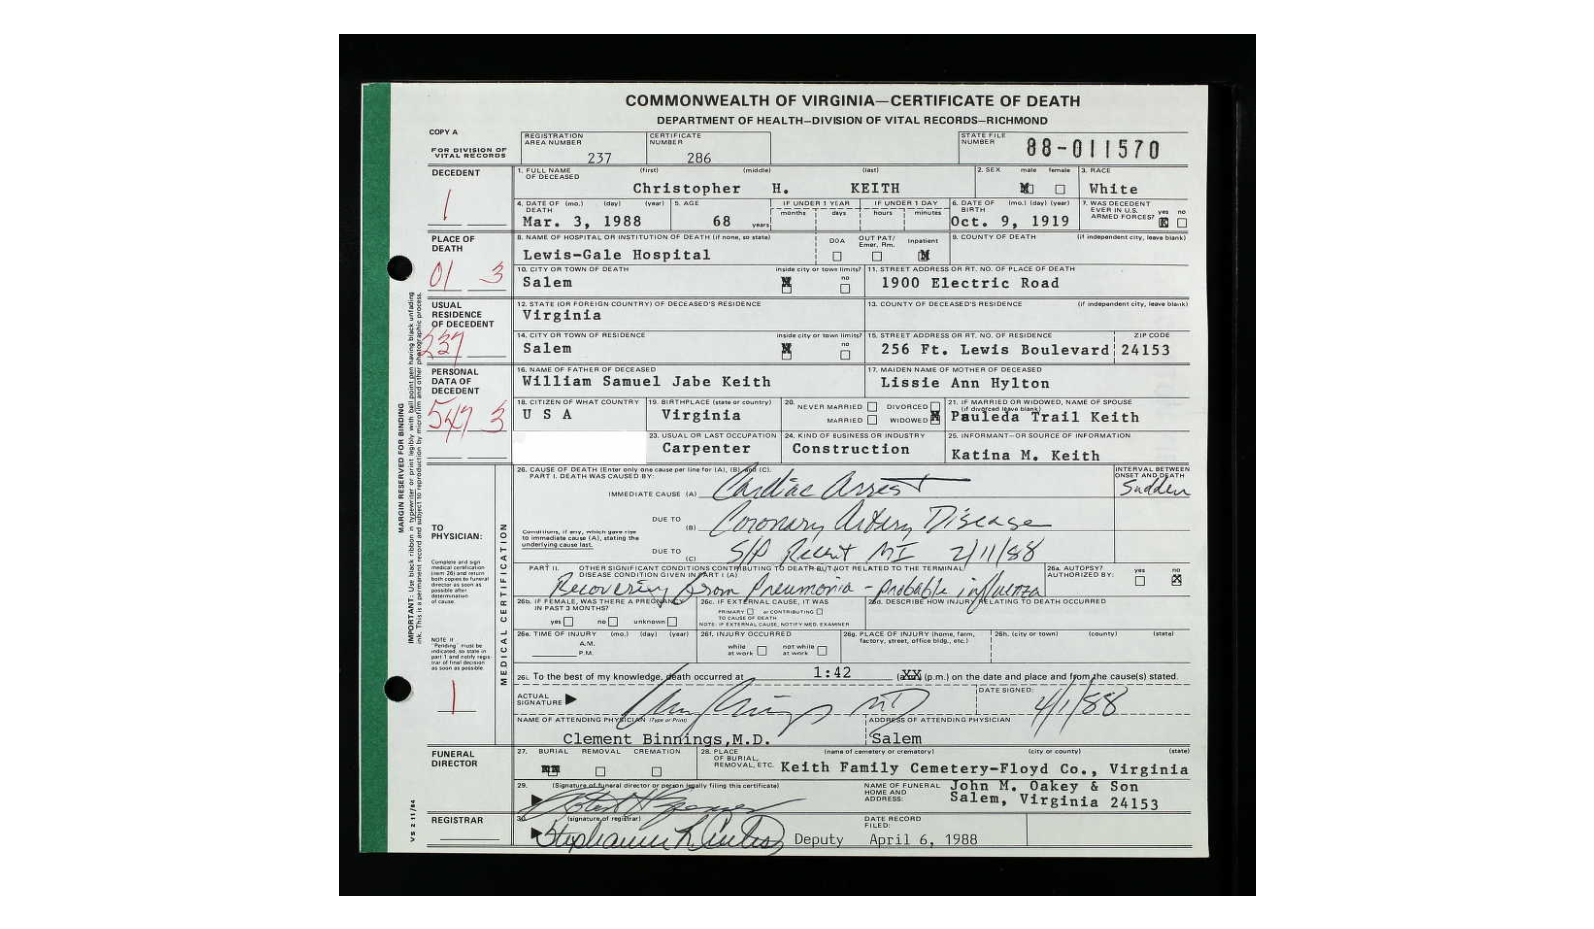 COMMONWEALTH OF VIRGINIA—CERTIFICATE OF DEATH
DEPARTMENT OF HEALTH—DIVISION OF VITAL RECORDS—RICHMOND
COPY A
FOR DIVISION OF VITAL RECORDS
REGISTRATION AREA NUMBER 237
CERTIFICATE NUMBER 286
STATE FILE NUMBER 88-011570
DECEDENT
1
1. FULL NAME OF DECEASED (first) (middle) (last)
Christopher H. KEITH
2. SEX male female
3. RACE
White
4. DATE OF DEATH (mo.) (day) (year)
Mar. 3, 1988
5. AGE
68 years
IF UNDER 1 YEAR months days
IF UNDER 1 DAY hours minutes
6. DATE OF BIRTH (mo.) (day) (year)
Oct. 9, 1919
7. WAS DECEDENT EVER IN U.S. ARMED FORCES? yes no
PLACE OF DEATH
01 3
8. NAME OF HOSPITAL OR INSTITUTION OF DEATH (if none, so state)
Lewis-Gale Hospital
DOA OUT PAT/ Emer. Rm. Inpatient
9. COUNTY OF DEATH (if independent city, leave blank)
10. CITY OR TOWN OF DEATH inside city or town limits? no
Salem
11. STREET ADDRESS OR RT. NO. OF PLACE OF DEATH
1900 Electric Road
USUAL RESIDENCE OF DECEDENT
237
12. STATE (OR FOREIGN COUNTRY) OF DECEASED'S RESIDENCE
Virginia
13. COUNTY OF DECEASED'S RESIDENCE (if independent city, leave blank)
14. CITY OR TOWN OF RESIDENCE inside city or town limits? no
Salem
15. STREET ADDRESS OR RT. NO. OF RESIDENCE ZIP CODE
256 Ft. Lewis Boulevard 24153
PERSONAL DATA OF DECEDENT
547 3
16. NAME OF FATHER OF DECEASED
William Samuel Jabe Keith
17. MAIDEN NAME OF MOTHER OF DECEASED
Lissie Ann Hylton
18. CITIZEN OF WHAT COUNTRY
U S A
19. BIRTHPLACE (state or country)
Virginia
20. NEVER MARRIED DIVORCED
MARRIED WIDOWED
21. IF MARRIED OR WIDOWED, NAME OF SPOUSE (if divorced leave blank)
Pauleda Trail Keith
23. USUAL OR LAST OCCUPATION
Carpenter
24. KIND OF BUSINESS OR INDUSTRY
Construction
25. INFORMANT—OR SOURCE OF INFORMATION
Katina M. Keith
MARGIN RESERVED FOR BINDING
IMPORTANT: Use black ribbon in typewriter or print legibly with ball point pen having black unfading
ink. This is a permanent record and subject to reproduction by microfilm and other photographic process.
TO PHYSICIAN:
Complete and sign medical certification (item 26) and return both copies to funeral director as soon as possible after determination of cause.
NOTE: If "Pending" must be indicated, so state in part 1 and notify registrar of final decision as soon as possible.
1
MEDICAL CERTIFICATION
26. CAUSE OF DEATH (Enter only one cause per line for (A), (B), and (C).
PART I. DEATH WAS CAUSED BY:
INTERVAL BETWEEN ONSET AND DEATH
IMMEDIATE CAUSE (A) Cardiac Arrest Sudden
Conditions, if any, which gave rise to immediate cause (A), stating the underlying cause last.
DUE TO (B) Coronary Artery Disease
DUE TO (C) S/P Recent MI 2/11/88
PART II. OTHER SIGNIFICANT CONDITIONS CONTRIBUTING TO DEATH BUT NOT RELATED TO THE TERMINAL DISEASE CONDITION GIVEN IN PART I (A)
Recovering from Pneumonia - probable influenza
26a. AUTOPSY? AUTHORIZED BY: yes no
26b. IF FEMALE, WAS THERE A PREGNANCY IN PAST 3 MONTHS?
yes no unknown
26c. IF EXTERNAL CAUSE, IT WAS
PRIMARY or CONTRIBUTING
TO CAUSE OF DEATH
NOTE: IF EXTERNAL CAUSE, NOTIFY MED. EXAMINER
26d. DESCRIBE HOW INJURY RELATING TO DEATH OCCURRED
26e. TIME OF INJURY (mo.) (day) (year)
A.M.
P.M.
26f. INJURY OCCURRED
while at work not while at work
26g. PLACE OF INJURY (home, farm, factory, street, office bldg., etc.)
26h. (city or town) (county) (state)
26i. To the best of my knowledge, death occurred at 1:42 (a XX (p.m.) on the date and place and from the cause(s) stated.
ACTUAL SIGNATURE
MD
DATE SIGNED:
4/1/88
NAME OF ATTENDING PHYSICIAN (Type or Print)
Clement Binnings,M.D.
ADDRESS OF ATTENDING PHYSICIAN
Salem
FUNERAL DIRECTOR
27. BURIAL REMOVAL CREMATION
28. PLACE OF BURIAL, REMOVAL, ETC. (name of cemetery or crematory) (city or county) (state)
Keith Family Cemetery-Floyd Co., Virginia
29. (Signature of funeral director or person legally filing this certificate)
NAME OF FUNERAL HOME AND ADDRESS:
John M. Oakey & Son
Salem, Virginia 24153
REGISTRAR
30. (signature of registrar)
Deputy
DATE RECORD FILED:
April 6, 1988
VS 2 11/84